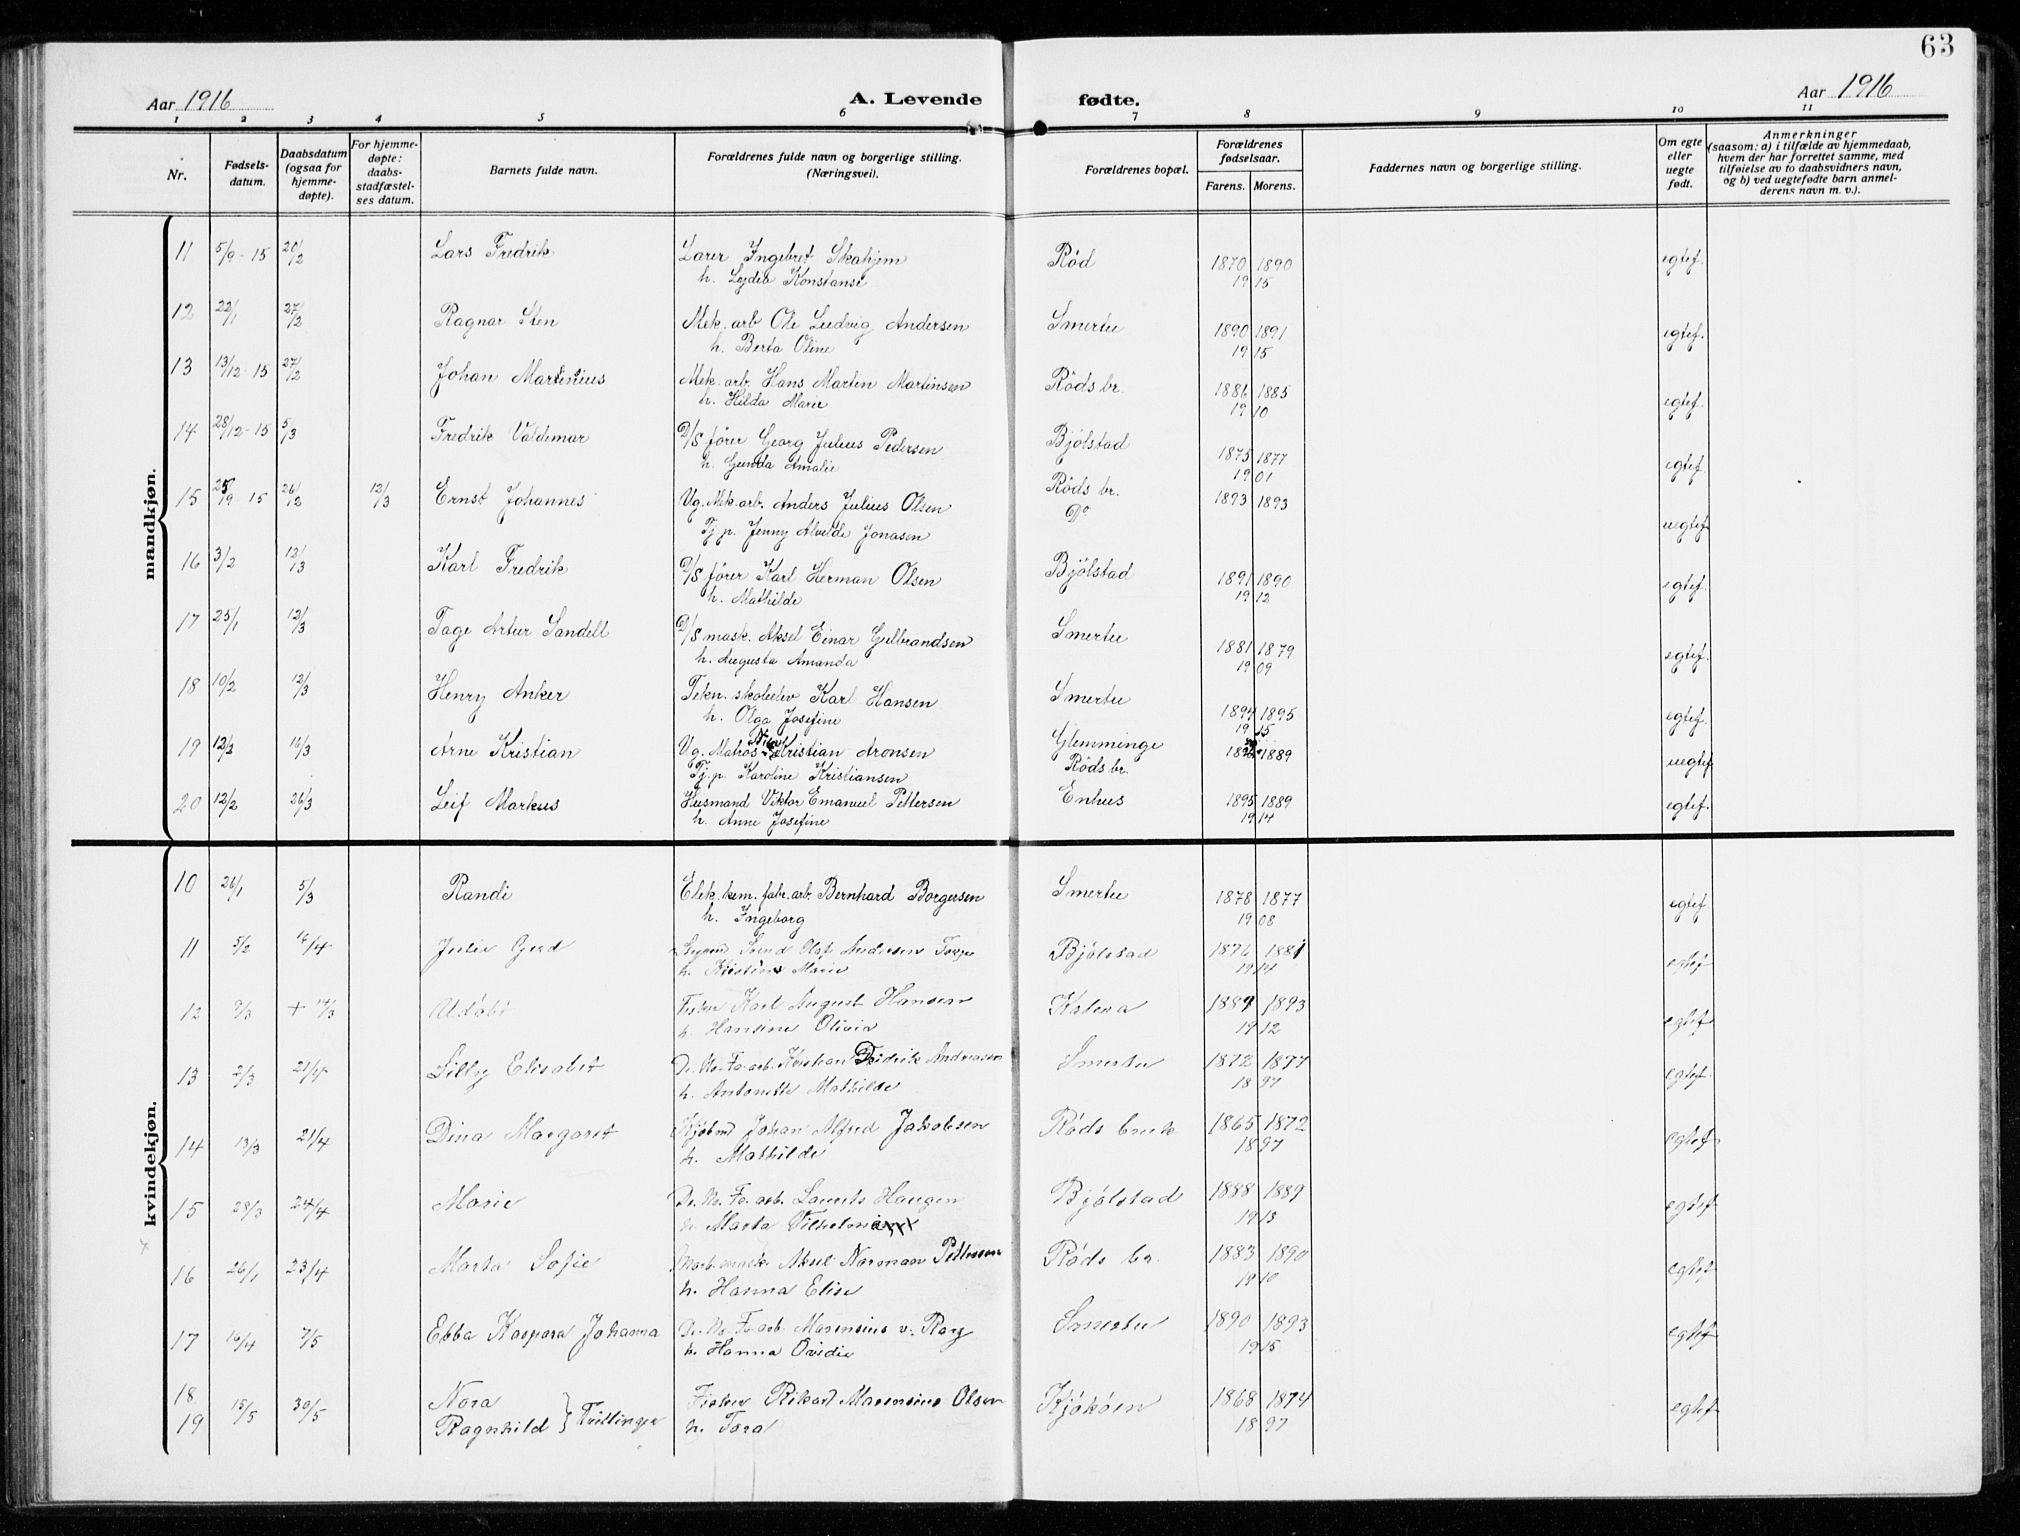 63
Aar 1916 A. Levende fødte. Aar 1916
1 2 3 4 5 6 7 8 9 10 11
Nr. Fødsels-datum. Daabsdatum (ogsaa for hjemme-døpte). For hjemme-døpte: daabs-stadfæstel-ses datum. Barnets fulde navn. Forældrenes fulde navn og borgerlige stilling. (Næringsvei). Forældrenes bopæl. Forældrenes fødselsaar. Farens. Morens. Faddernes navn og borgerlige stilling. Om egte eller uegte født. Anmerkninger (saasom: a) i tilfælde av hjemmedaab, hvem der har forrettet samme, med tilføielse av to daabsvidners navn, og b) ved uegtefødte barn anmel-derens navn m. v.).
mandkjøn.
11 5/9-15 20/2 Lars Fredrik Lærer Ingebret Skahjem Rød 1870 1890 egtef.
h. Lydea Konstanse 19 15
12 22/1 27/2 Ragnar Sten Mek. arb Ole Ludvig Andersen Smertu 1890 1891 egtef.
h. Berta Oline 19 15
13 13/12-15 27/2 Johan Martinius Mek. arb. Hans Martin Martinsen Røds br. 1886 1885 egtef.
h. Hilda Marie 19 10
14 28/12-15 5/3 Fredrik Valdemar D/S fører Georg Julius Pedersen Bjølstad 1875 1877 egtef.
h. Gunda Amalie 19 01
15 25/9-15 26/12 12/3 Ernst Johannes Ug. Mek. arb. Anders Julius Olsen Røds br. 1893 1893 uegtef
Tj. p. Jenny Alvilde Jonasen Do
16 3/2 12/3 Karl Fredrik D/S fører Karl Herman Olsen Bjølstad 1891 1890 egtef.
h. Mathilde 19 12
17 25/1 12/3 Tage Artur Sandell D/S mask. Aksel Einar Gulbrandsen Smertu 1881 1879 egtef.
h. Augusta Amanda 19 09
18 10/2 12/3 Henry Anker Tekn. skoleelev Karl Hansen Smertu 1894 1895 egtef.
h. Olga Josefine 19 15
19 12/2 16/3 Arne Kristian Ug. Matros Kristian Aronsen Glemminge 1889 uegtef
Tj. p. Karoline Kristiansen Røds br.
20 12/2 26/3 Leif Markus Husmand Viktor Emanuel Pettersen Enhus 1895 1889 egtef.
h. Anne Josefine 19 14
kvindekjøn.
10 26/1 5/3 Randi Elek. kem. fabr. arb. Bernhard Borgersen Smertu 1878 1877 egtef
h. Ingeborg 19 08
11 5/2 14/4 Julie Gerd Svend Olaf Andresen Bjølstad 1876 1881 egtef
h. Kristine Marie 19 14
12 9/3 + 14/3 Udøbt Fisker Karl August Hansen 1889 1893 egtef
h. Hansine Olivia 19 12
13 2/3 21/4 Lilly Elisabet De. No. Fa. arb. Kristian Fredrik Andreasen Smertu 1872 1877 egtef.
h. Antonette Mathilde 18 97
14 13/3 21/4 Dina Margaret Kjøbmd Johan Alfred Jakobsen Røds bruk 1865 1872 egtef
h. Mathilde 18 97
15 28/3 24/4 Marie De. No. Fa. arb. Laurits Haugen Bjølstad 1888 1889 egtef
h. Marta Vilhelmine 19 13
16 26/1 23/4 Marta Sofie Aksel Norman Pettersen Røds br. 1883 1890 egtef
h. Hanna Elise 19 10
17 16/4 7/5 Ebba Kaspara Johanna De. No. Fa. arb. Marensius Smertu 1890 1893 egtef
h. Hanna Ovedie 19 15
18 15/5 30/5 Nora } Tvillinger Fisker Rikard Marensius Olsen Kjøkøen 1868 1874 egtef
19 Ragnhild h. Tora 18 97